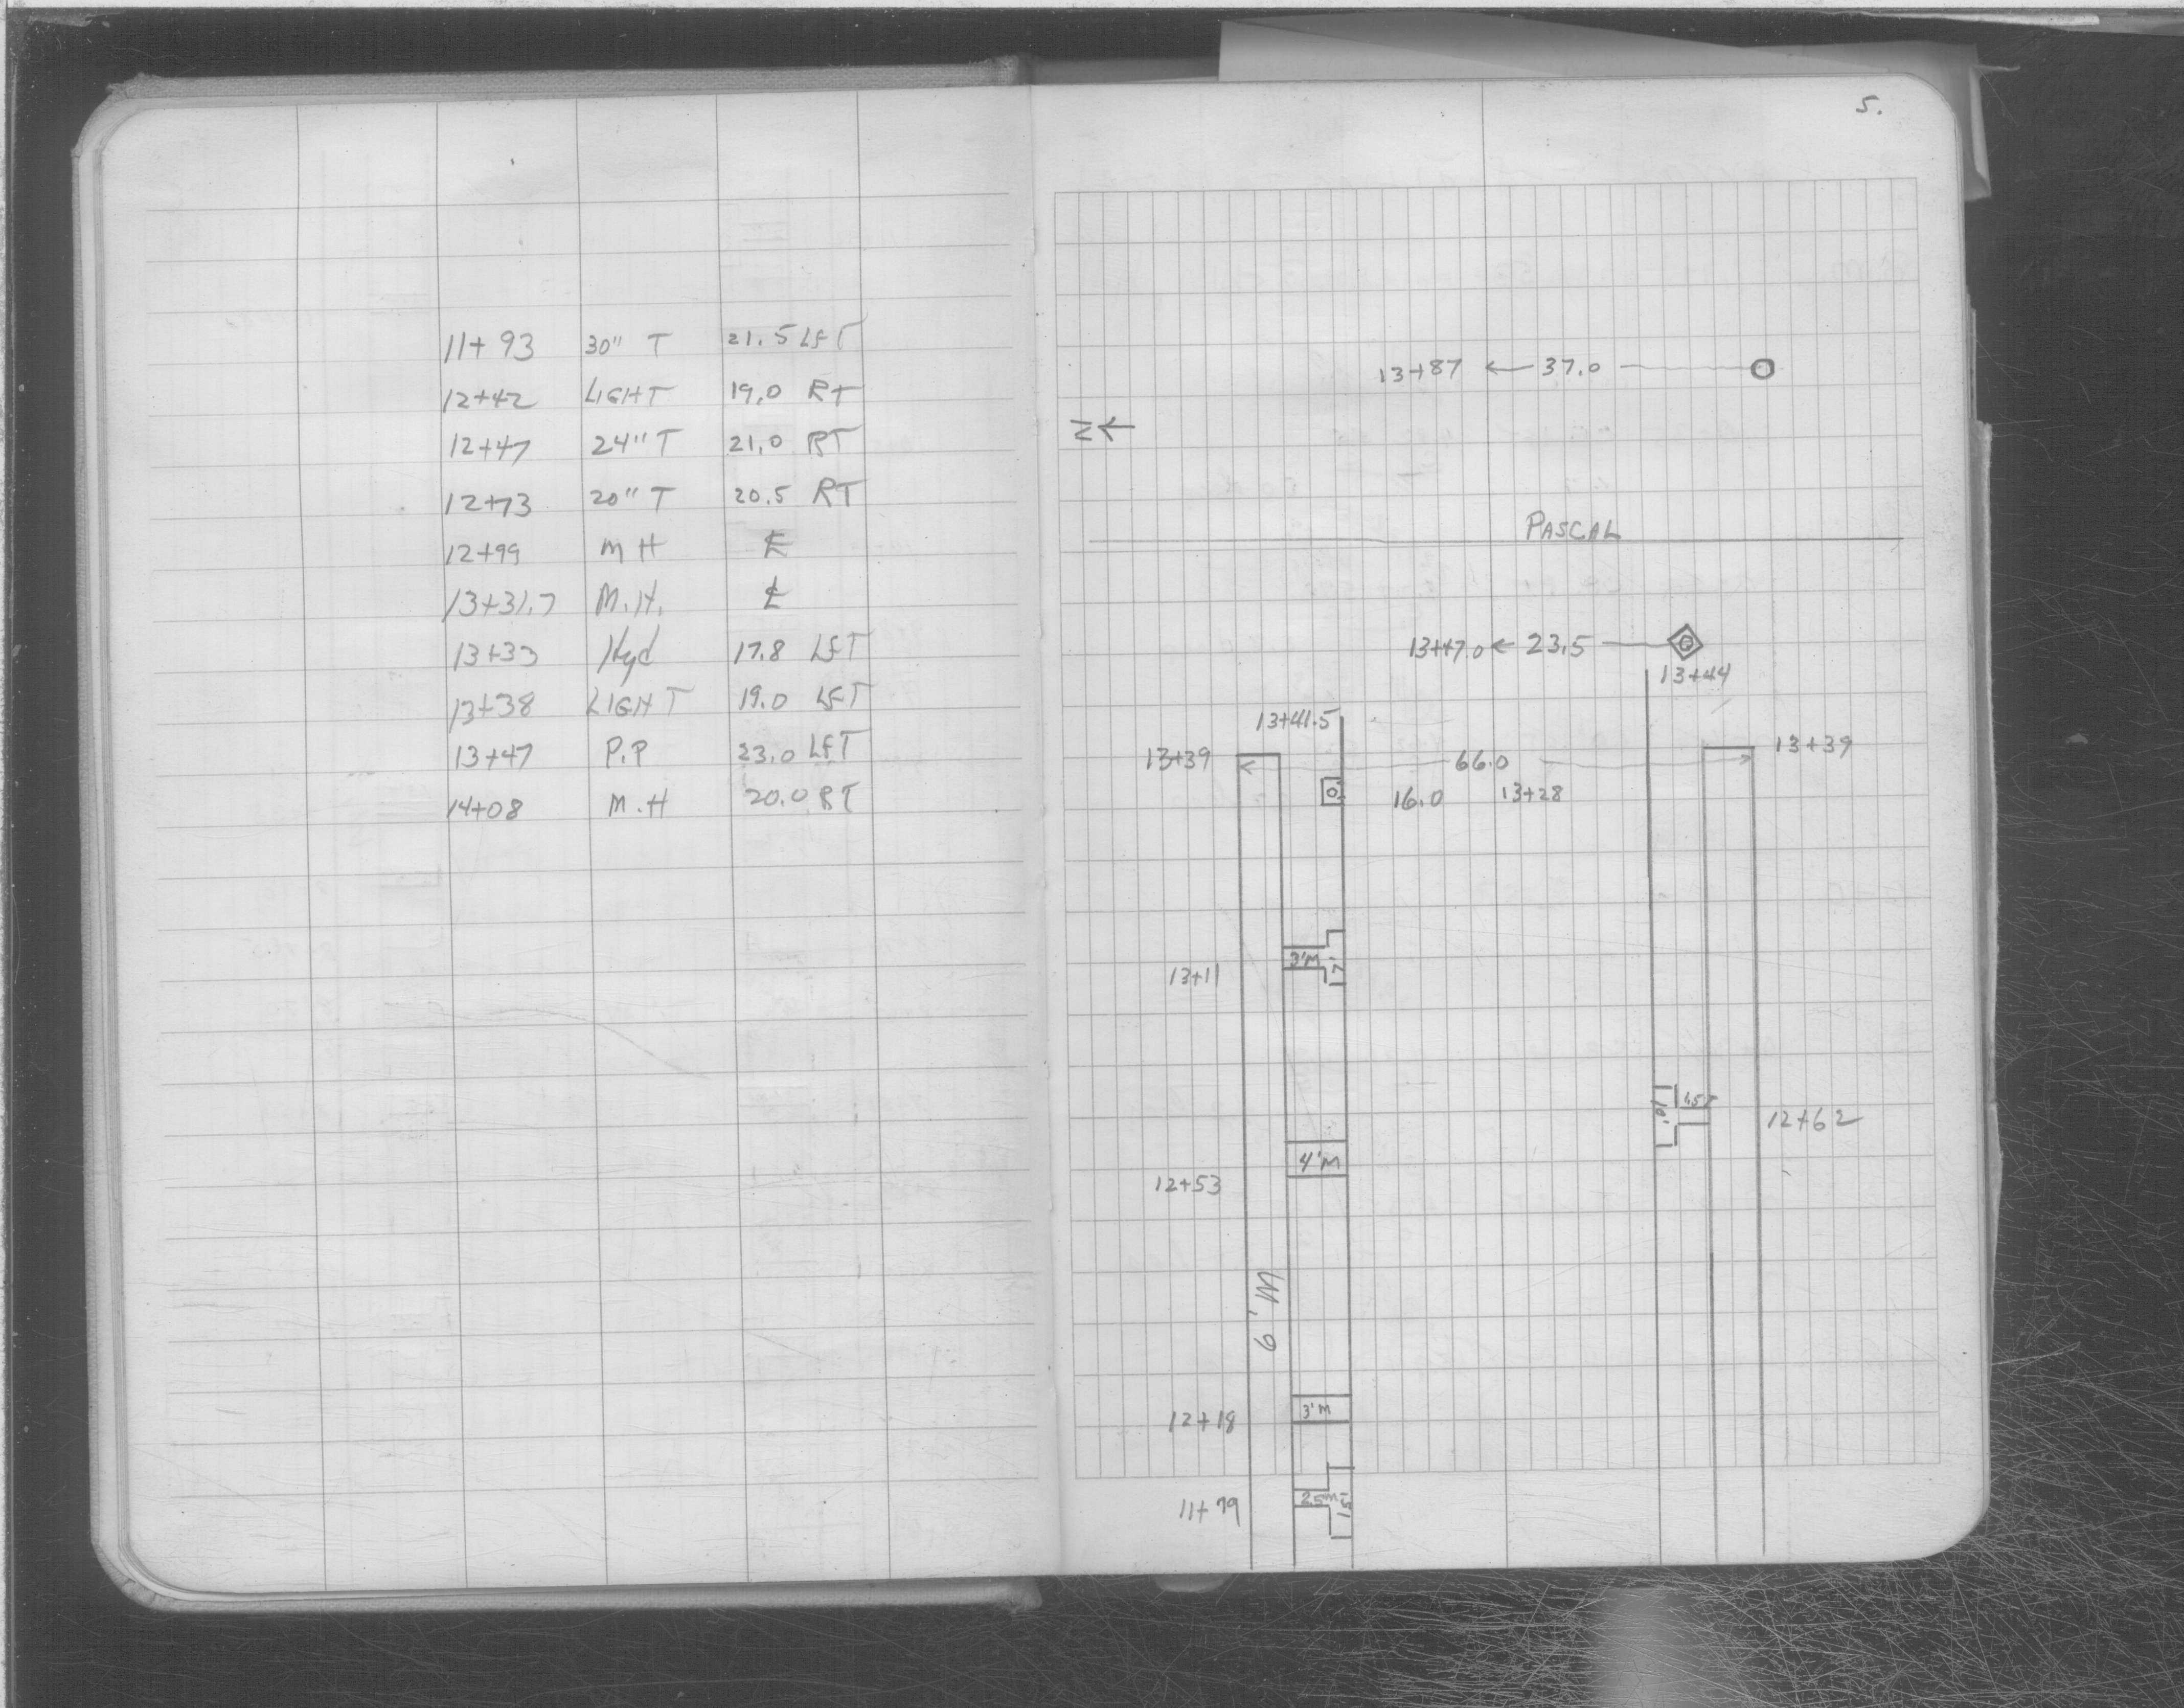 11+93 30" T 21.5 LFT
12+42 LIGHT 19.0 RT
12+47 24" T 21.0 RT
12+73 20" T 20.5 RT
12+99 M H ℄
13+31.7 M.H. ℄
13+33 Hyd 17.8 LFT
13+38 LIGHT 19.0 LFT
13+47 P.P 23.0 LFT
14+08 M.H 20.0 RT
5.
13+87 ← 37.0
N
PASCAL
13+47.0 ← 23.5
13+44
13+41.5
13+39 66.0 13+39
16.0 13+28
3'M 7'
13+11
10' 1.5
12+62
4'M
12+53
6'M
3'M
12+18
2.5M
11+79